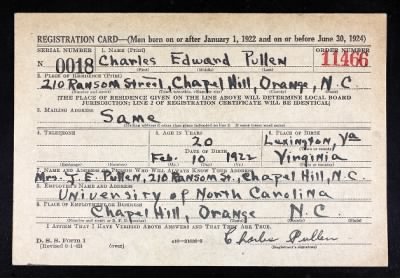 REGISTRATION CARD—(Men born on or after January 1, 1922 and on or before June 30, 1924)
SERIAL NUMBER 1. NAME (Print) ORDER NUMBER
N 0018 Charles Edward Pullen 11466
(First) (Middle) (Last)
2. PLACE OF RESIDENCE (Print)
210 Ransom Street, Chapel Hill, Orange, N.C
[THE PLACE OF RESIDENCE GIVEN ON THE LINE ABOVE WILL DETERMINE LOCAL BOARD
JURISDICTION; LINE 2 OF REGISTRATION CERTIFICATE WILL BE IDENTICAL]
3. MAILING ADDRESS
Same
4. TELEPHONE 5. AGE IN YEARS 6. PLACE OF BIRTH
20 Lexington, Va
DATE OF BIRTH
Feb. 10 1922 Virginia
7. NAME AND ADDRESS OF PERSON WHO WILL ALWAYS KNOW YOUR ADDRESS
Mrs. J. E. Pullen, 210 Ransom St., Chapel Hill, N.C.
8. EMPLOYER'S NAME AND ADDRESS
University of North Carolina
Chapel Hill, Orange N.C.
I AFFIRM THAT I HAVE VERIFIED ABOVE ANSWERS AND THAT THEY ARE TRUE.
D. S. S. Form 1
Charles Pullen
(Registrant's signature)